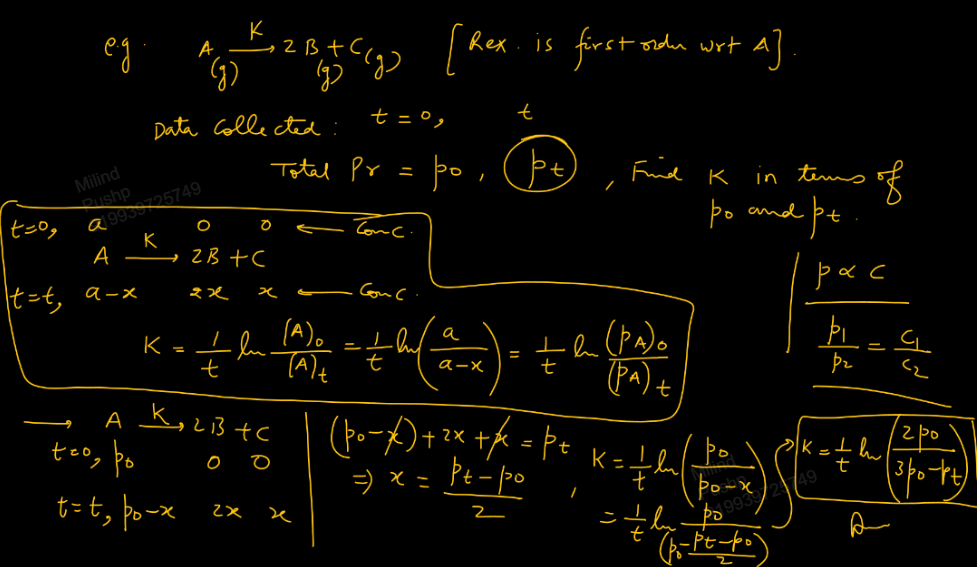 e.g. A(g) —K→ 2B(g) + C(g) [Rex. is first order wrt A].
Data collected: t=0, t
Total Pr = p0, pt, Find K in terms of
p0 and pt.
Milind
Pushp
19939725749
t=0, a 0 0 ← Conc.
A —K→ 2B + C
t=t, a-x 2x x ← Conc.
K = 1/t ln [A]0/[A]t = 1/t ln (a/(a-x)) = 1/t ln (pA)0/(pA)t
p ∝ c
p1/p2 = c1/c2
→ A —K→ 2B + C
t=0, p0 0 0
t=t, p0-x 2x x
(p0-x) + 2x + x = pt
⇒ x = (pt-p0)/2,
K = 1/t ln (p0/(p0-x))
= 1/t ln p0/(p0 - (pt-p0)/2)
Milind
19939725749
K = 1/t ln (2p0/(3p0-pt))